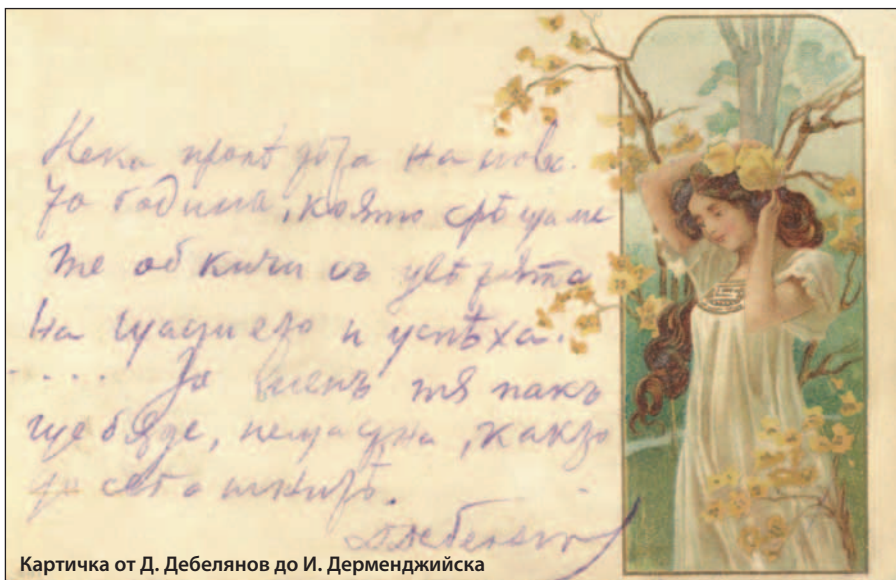 Нека пролѣтьта на нова-
та година, която срѣщаме
те обкичи съ цвѣтята
на щастието и успѣха.
..... За менъ тя пакъ
ще бѫде, нещастна, както
до сегашнитѣ.
Картичка от Д. Дебелянов до И. Дерменджийска